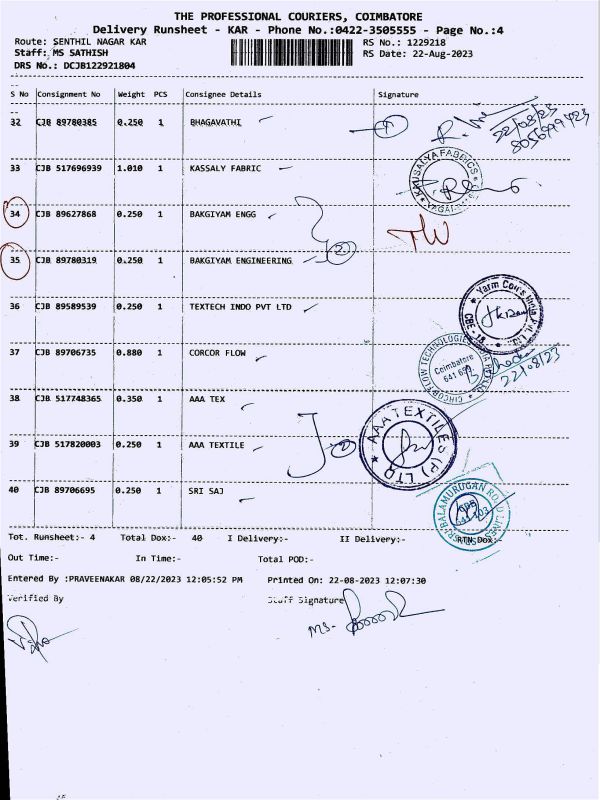 THE PROFESSIONAL COURIERS, COIMBATORE
Delivery Runsheet - KAR - Phone No.:0422-3505555 - Page No.:4
Route: SENTHIL NAGAR KAR RS No.: 1229218
Staff: MS SATHISH RS Date: 22-Aug-2023
DRS No.: DCJB122921804
S No Consignment No Weight PCS Consignee Details Signature
32 CJB 89780385 0.250 1 BHAGAVATHI 1
22/08/23
8056999423
33 CJB 517696939 1.010 1 KASSALY FABRIC
KAUSALYA FABRICS
34 CJB 89627868 0.250 1 BAKGIYAM ENGG
35 CJB 89780319 0.250 1 BAKGIYAM ENGINEERING 2
36 CJB 89589539 0.250 1 TEXTECH INDO PVT LTD
Yarm Cou's India Pvt. Ltd.
CBE - 18
37 CJB 89706735 0.880 1 CORCOR FLOW
CIRCOR FLOW TECHNOLOGIES
Coimbatore
22/08/23
38 CJB 517748365 0.350 1 AAA TEX
AAA TEXTILES (P) LTD
39 CJB 517820003 0.250 1 AAA TEXTILE 2
40 CJB 89706695 0.250 1 SRI SAJ
SRI BALAMURUGAN ROLD LINES
Tot. Runsheet:- 4 Total Dox:- 40 I Delivery:- II Delivery:- RTN Dox:-
Out Time:- In Time:- Total POD:-
Entered By :PRAVEENAKAR 08/22/2023 12:05:52 PM Printed On: 22-08-2023 12:07:30
Verified By Staff Signature
MS-